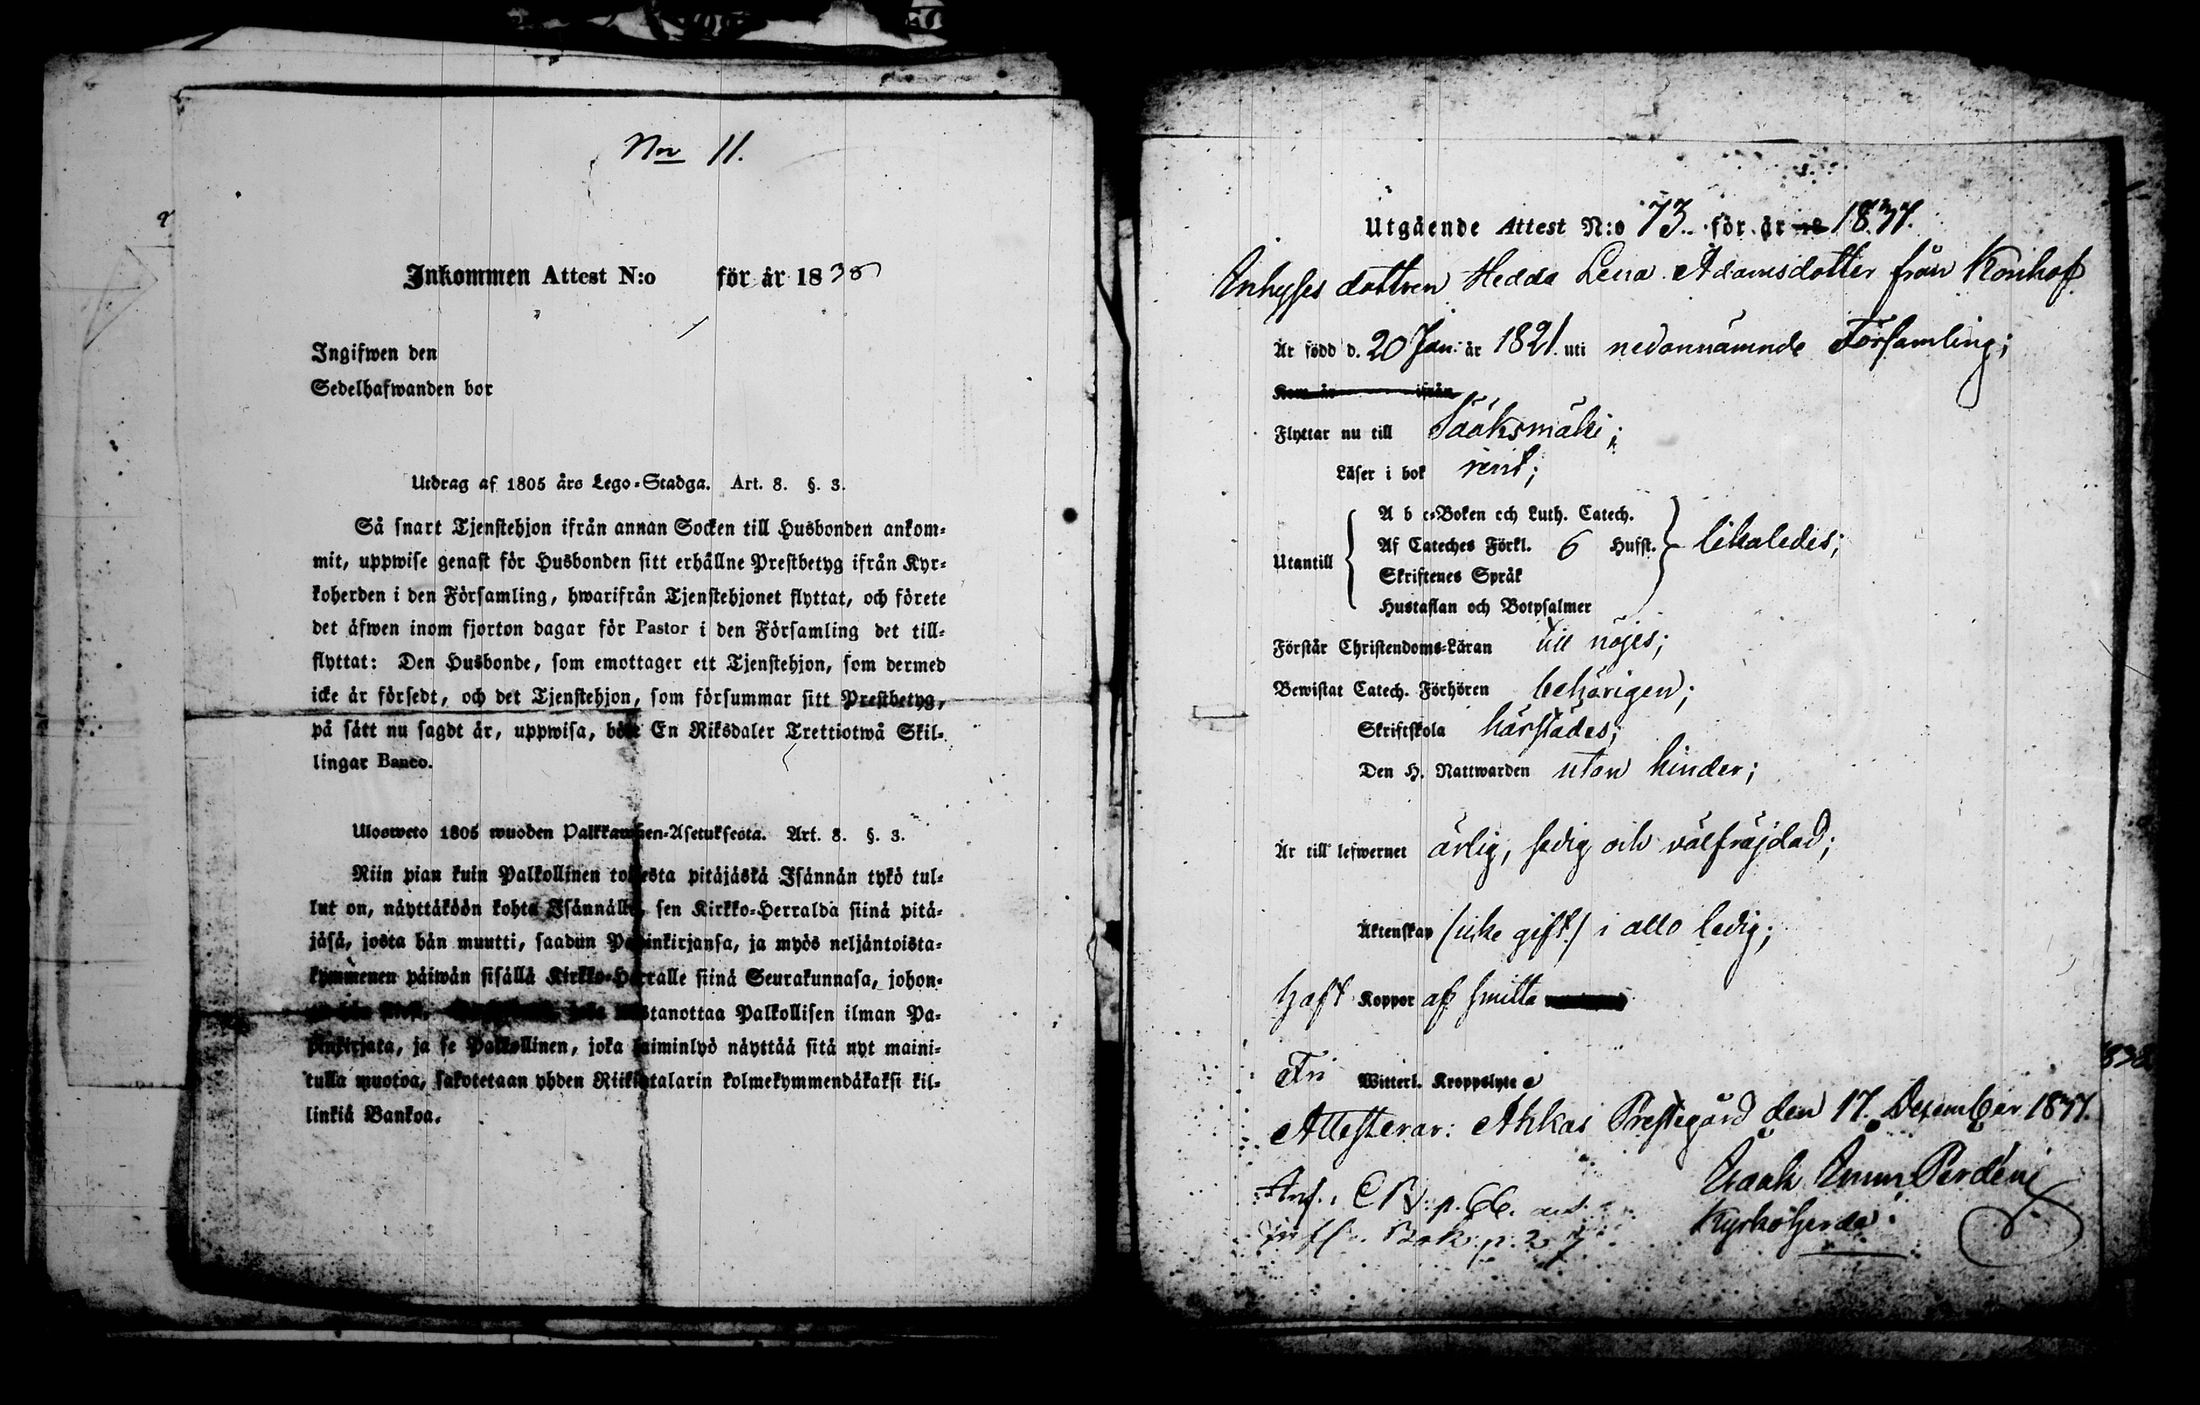 No 11.
Inkommen Attest N:o för år 1838
Ingifwen den
Sedelhafwanden bor
Utdrag af 1805 års Lego-Stadga. Art. 8. §. 3.
Så snart Tjenstehjon ifrån annan Socken till Husbonden ankom-
mit, uppwise genast för Husbonden sitt erhållne Prestbetyg ifrån Kyr-
koherden i den Församling, hwarifrån Tjenstehjonet flyttat, och förete
det äfwen inom fjorton dagar för Pastor i den Församling det till-
flyttat: Den Husbonde, som emottager ett Tjenstehjon, som dermed
icke är försedt, och det Tjenstehjon, som försummar sitt Prestbetyg,
på sätt nu sagdt är, uppwisa, böte En Riksdaler Trettiotwå Skil-
lingar Banco.
Ulosweto 1805 wuoden Palkkawäen-Asetuksesta. Art. 8. §. 3.
Niin pian kuin Palkollinen toisesta pitäjästä Isännän tykö tul-
lut on, näyttäköön kohta Isännälle, sen Kirkko-Herralda siinä pitä-
jäsä, josta hän muutti, saadun Papinkirjansa, ja myös neljäntoista-
kymmenen päiwän sisällä Kirkko-Herralle siinä Seurakunnasa, johon-
wastanottaa Palkollisen ilman Pa-
pinkirjata, ja se Palkollinen, joka laiminlyö näyttää sitä nyt maini-
tulla muotoa, sakotetaan yhden Riikintalarin kolmekymmendäkaksi kil-
linkiä Bankoa.
Utgående Attest N:o 73. för år 1837.
Inhyses dottren Hedda Lena Adamsdotter från Konhof
Är född d. 20 Jan: år 1821. uti nedannämnde Församling;
Kom år ifrån
Flyttar nu till Sääksmäki;
Läser i bok rent;
A b c-Boken och Luth. Catech.
Utantill Af Cateches Förkl. 6 Hufst. likaledes;
Skriftenes Språk
Hustaflan och Botpsalmer
Förstår Christendoms-Läran till nöjes;
Bewistat Catech. Förhören behörigen;
Skriftskola härstädes;
Den H. Nattwarden utan hinder;
Är till lefwernet ärlig, sedig och välfräjdad;
Äktenskap (icke gift) i allo ledig;
Haft Koppor af smitta
Fri Witterl. Kroppslyte
Attesterar: Akkas Prestegård den 17. December 1837.
Isaak Imm. Perdén
Kyrkoherde.
Anf. CB. p. 66.
Bok. p. 27